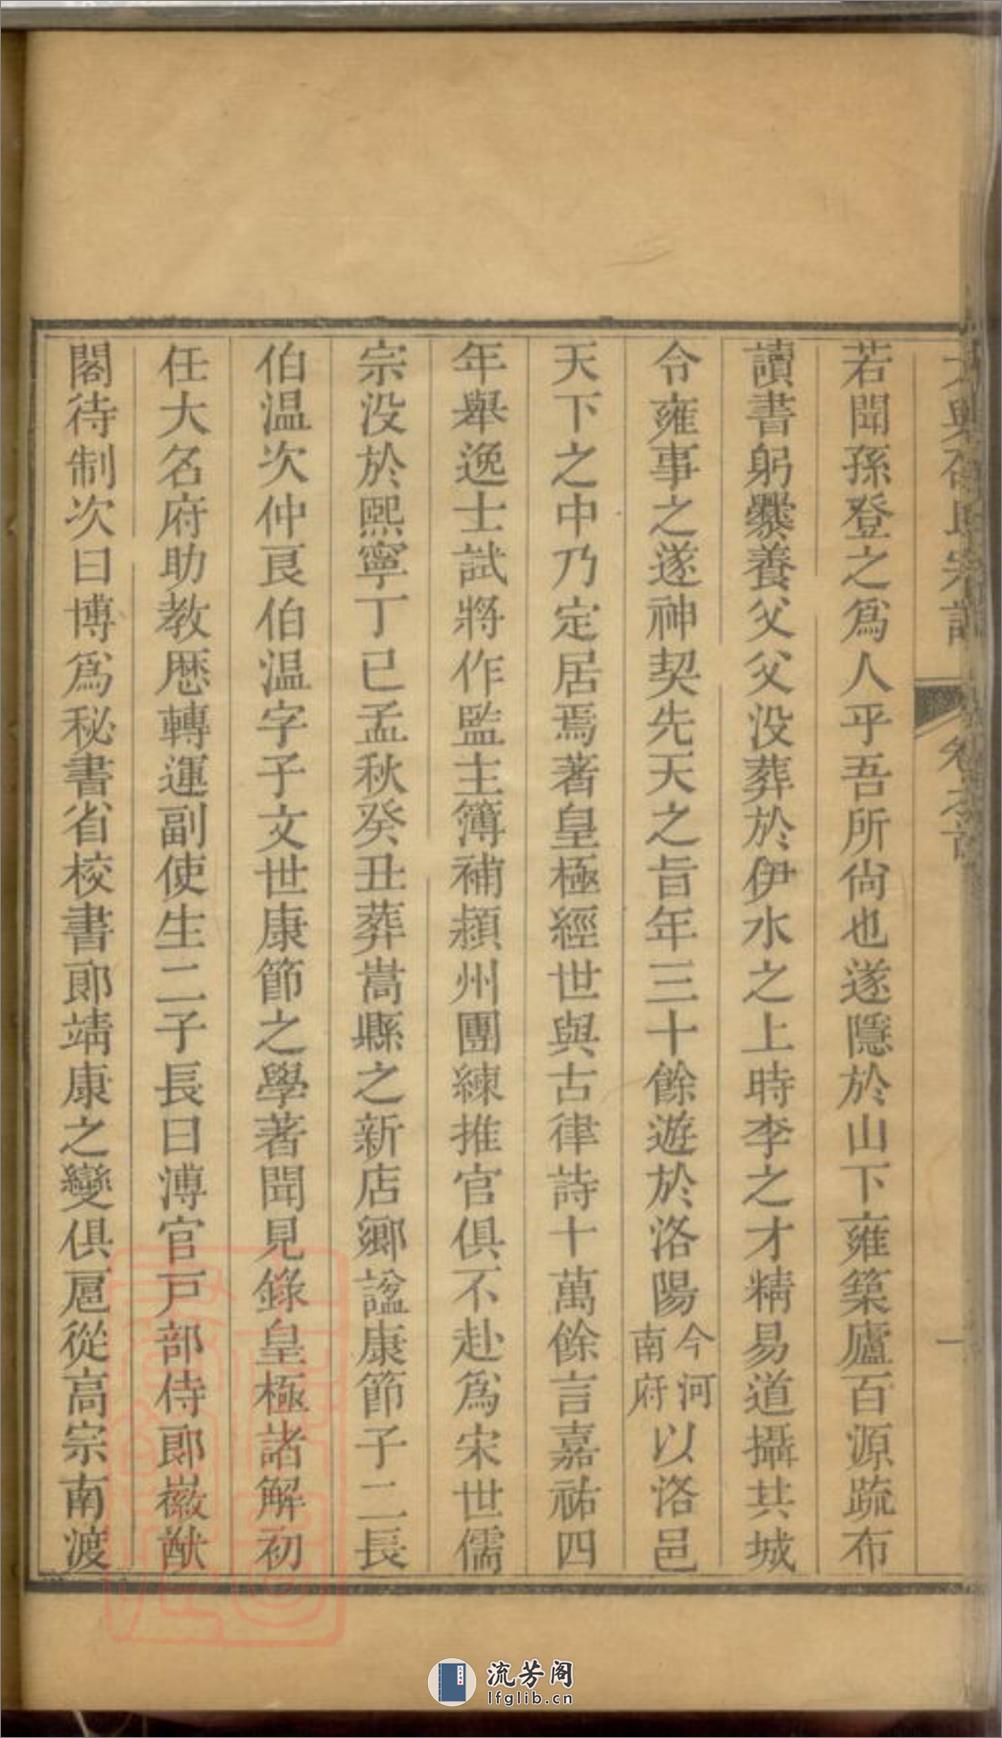 若聞孫登之爲人乎吾所尙也遂隱於山下雍築廬百源疏布
讀書躬爨養父父没葬於伊水之上時李之才精易道攝共城
令雍事之遂神契先天之旨年三十餘遊於洛陽今河南府以洛邑
天下之中乃定居焉著皇極經世與古律詩十萬餘言嘉祐四
年舉逸士試將作監主簿補潁州團練推官俱不赴爲宋世儒
宗没於熙寧丁巳孟秋癸丑葬嵩縣之新店鄉諡康節子二長
伯温次仲良伯温字子文世康節之學著聞見錄皇極諸解初
任大名府助教歴轉運副使生二子長曰溥官戸部侍郎徽猷
閣待制次曰博爲秘書省校書郎靖康之變俱扈從高宗南渡
流芳阁
lfglib.cn